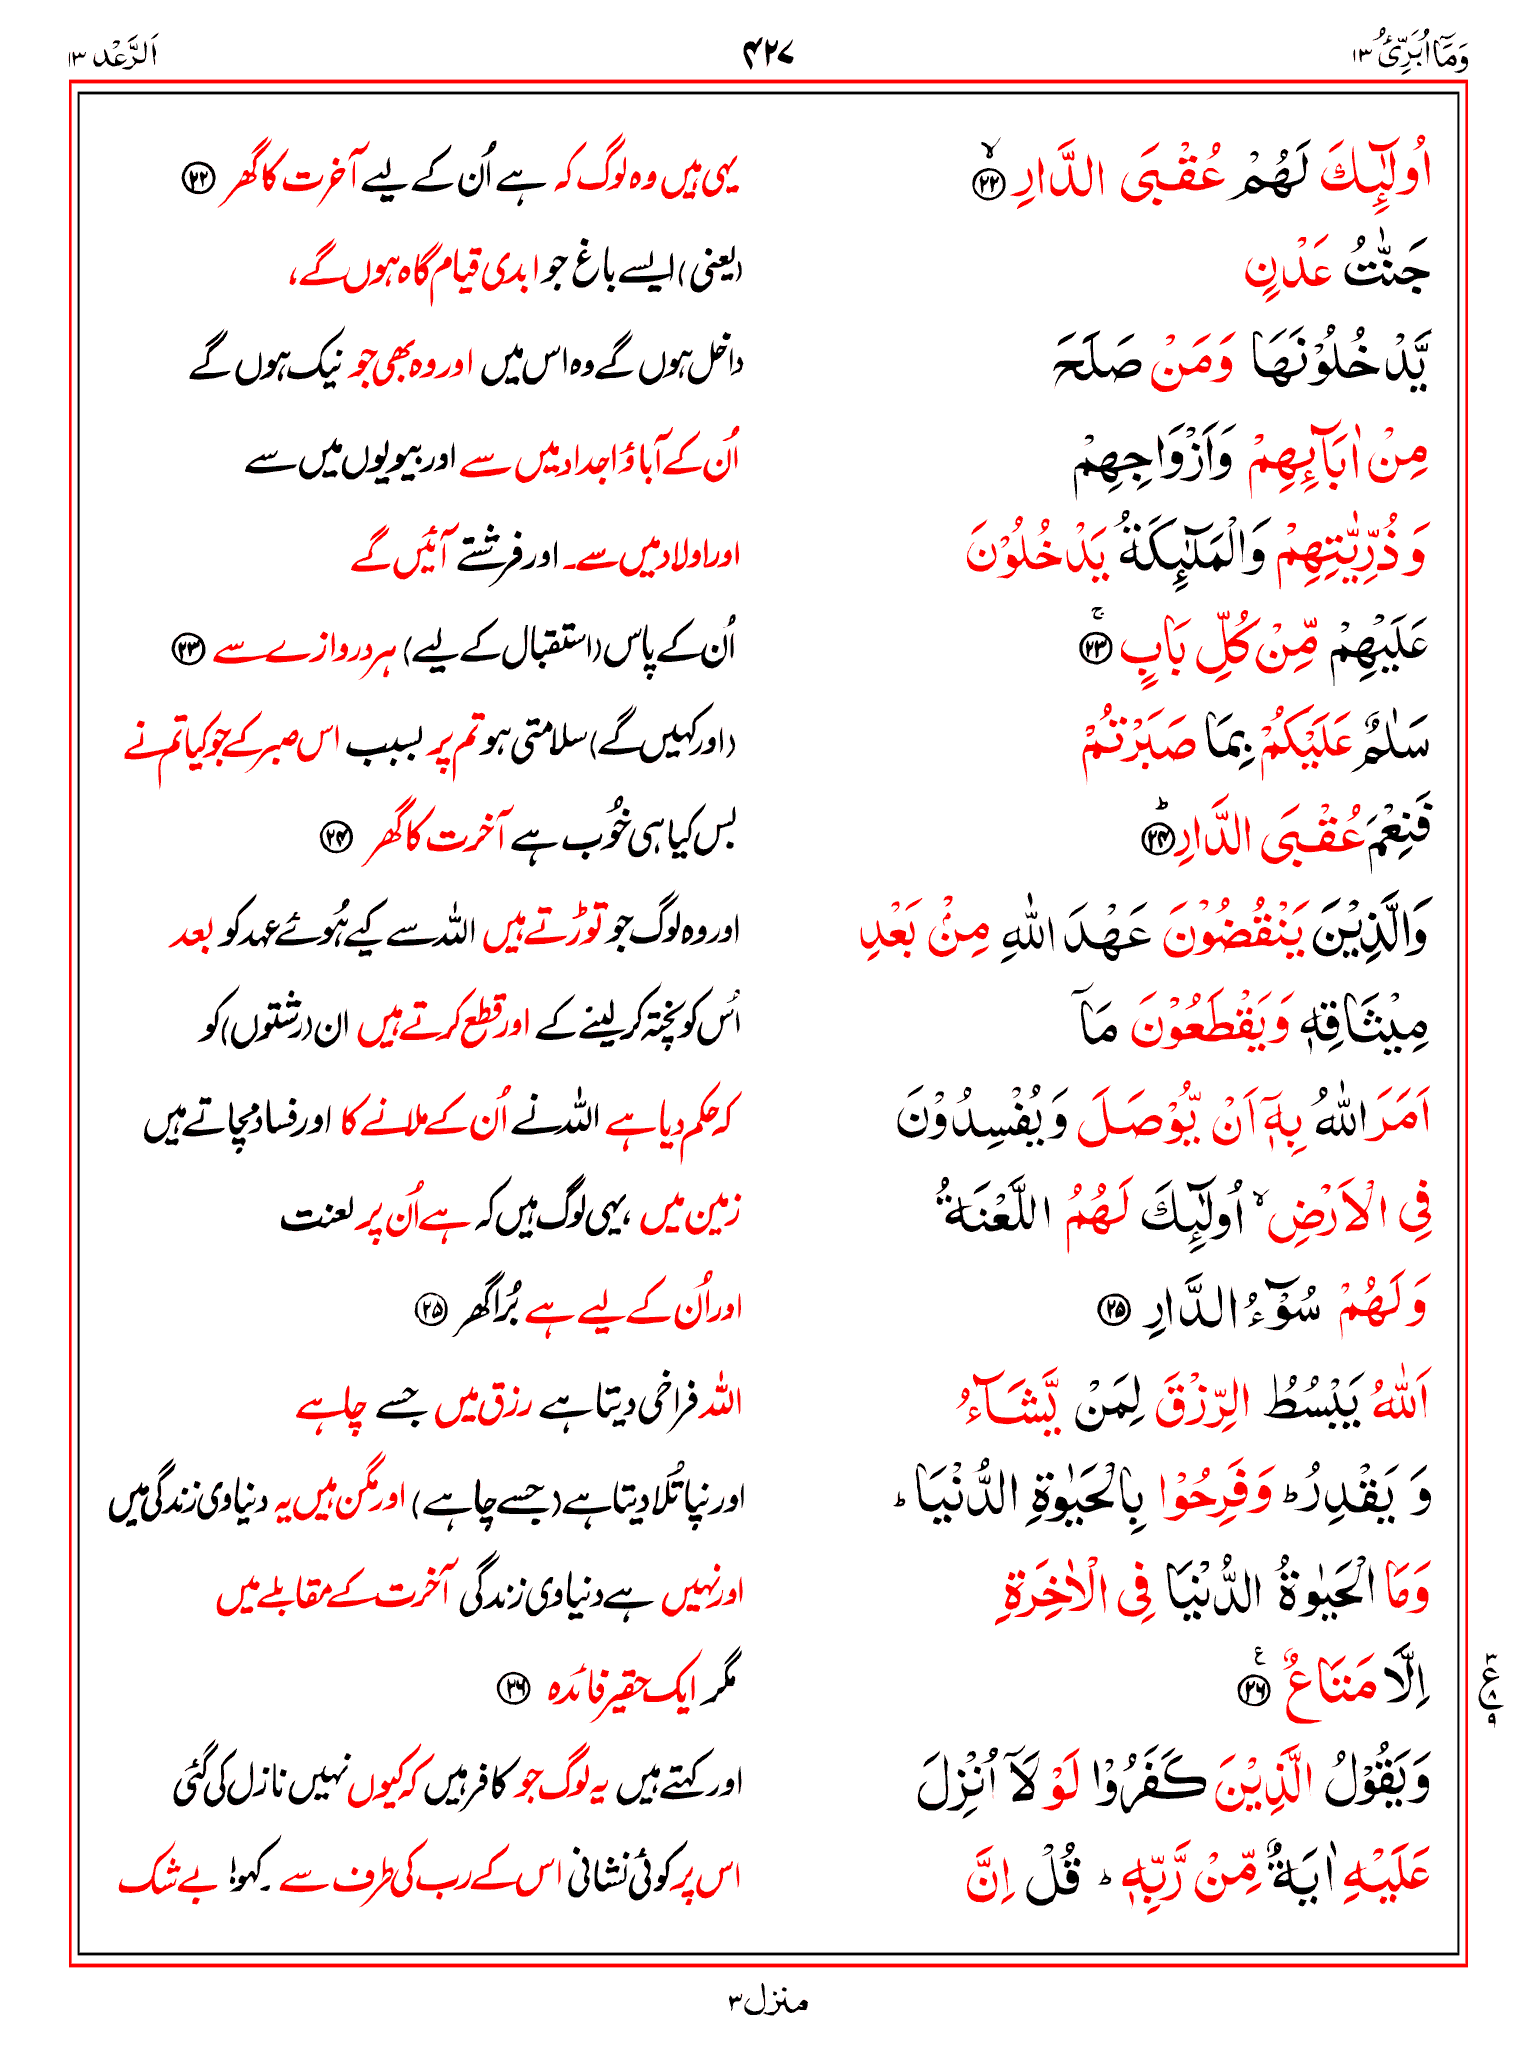 وَمَآ اُبَرِّئُ ۱۳ ۴۲۷ اَلرَّعْد ۱۳
اُولٰٓئِكَ لَهُمْ عُقْبَى الدَّارِ ﴿۲۲﴾ۙ یہی ہیں وہ لوگ کہ ہے اُن کے لیے آخرت کا گھر ﴿۲۲﴾
جَنّٰتُ عَدْنٍ (یعنی) ایسے باغ جو ابدی قیام گاہ ہوں گے،
يَّدْخُلُوْنَهَا وَمَنْ صَلَحَ داخل ہوں گے وہ اس میں اور وہ بھی جو نیک ہوں گے
مِنْ اٰبَآئِهِمْ وَاَزْوَاجِهِمْ اُن کے آباؤ اجداد میں سے اور بیویوں میں سے
وَذُرِّيّٰتِهِمْ وَالْمَلٰٓئِكَةُ يَدْخُلُوْنَ اور اولاد میں سے۔ اور فرشتے آئیں گے
عَلَيْهِمْ مِّنْ كُلِّ بَابٍ ﴿۲۳﴾ۚ اُن کے پاس (استقبال کے لیے) ہر دروازے سے ﴿۲۳﴾
سَلٰمٌ عَلَيْكُمْ بِمَا صَبَرْتُمْ (اور کہیں گے) سلامتی ہو تم پر بسبب اس صبر کے جو کیا تم نے
فَنِعْمَ عُقْبَى الدَّارِ ﴿۲۴﴾ؕ بس کیا ہی خُوب ہے آخرت کا گھر ﴿۲۴﴾
وَالَّذِيْنَ يَنْقُضُوْنَ عَهْدَ اللّٰهِ مِنْۢ بَعْدِ اور وہ لوگ جو توڑتے ہیں اللہ سے کیے ہُوئے عہد کو بعد
مِيْثَاقِهٖ وَيَقْطَعُوْنَ مَآ اُس کو پختہ کر لینے کے اور قطع کرتے ہیں ان (رشتوں) کو
اَمَرَ اللّٰهُ بِهٖٓ اَنْ يُّوْصَلَ وَيُفْسِدُوْنَ کہ حکم دیا ہے اللہ نے اُن کے ملانے کا اور فساد مچاتے ہیں
فِى الْاَرْضِ ۙ اُولٰٓئِكَ لَهُمُ اللَّعْنَةُ زمین میں، یہی لوگ ہیں کہ ہے اُن پر لعنت
وَلَهُمْ سُوْٓءُ الدَّارِ ﴿۲۵﴾ اور اُن کے لیے ہے بُرا گھر ﴿۲۵﴾
اَللّٰهُ يَبْسُطُ الرِّزْقَ لِمَنْ يَّشَآءُ اللہ فراخی دیتا ہے رزق میں جسے چاہے
وَيَقْدِرُ ؕ وَفَرِحُوْا بِالْحَيٰوةِ الدُّنْيَا ؕ اور نپا تُلا دیتا ہے (جسے چاہے) اور مگن ہیں یہ دنیاوی زندگی میں
وَمَا الْحَيٰوةُ الدُّنْيَا فِى الْاٰخِرَةِ اور نہیں ہے دنیاوی زندگی آخرت کے مقابلے میں
اِلَّا مَتَاعٌ ﴿۲۶﴾ۧ مگر ایک حقیر فائدہ ﴿۲۶﴾
ع ۳ ۸ ۹
وَيَقُوْلُ الَّذِيْنَ كَفَرُوْا لَوْلَآ اُنْزِلَ اور کہتے ہیں یہ لوگ جو کافر ہیں کہ کیوں نہیں نازل کی گئی
عَلَيْهِ اٰيَةٌ مِّنْ رَّبِّهٖ ؕ قُلْ اِنَّ اس پر کوئی نشانی اس کے رب کی طرف سے۔ کہو! بے شک
منزل ۳